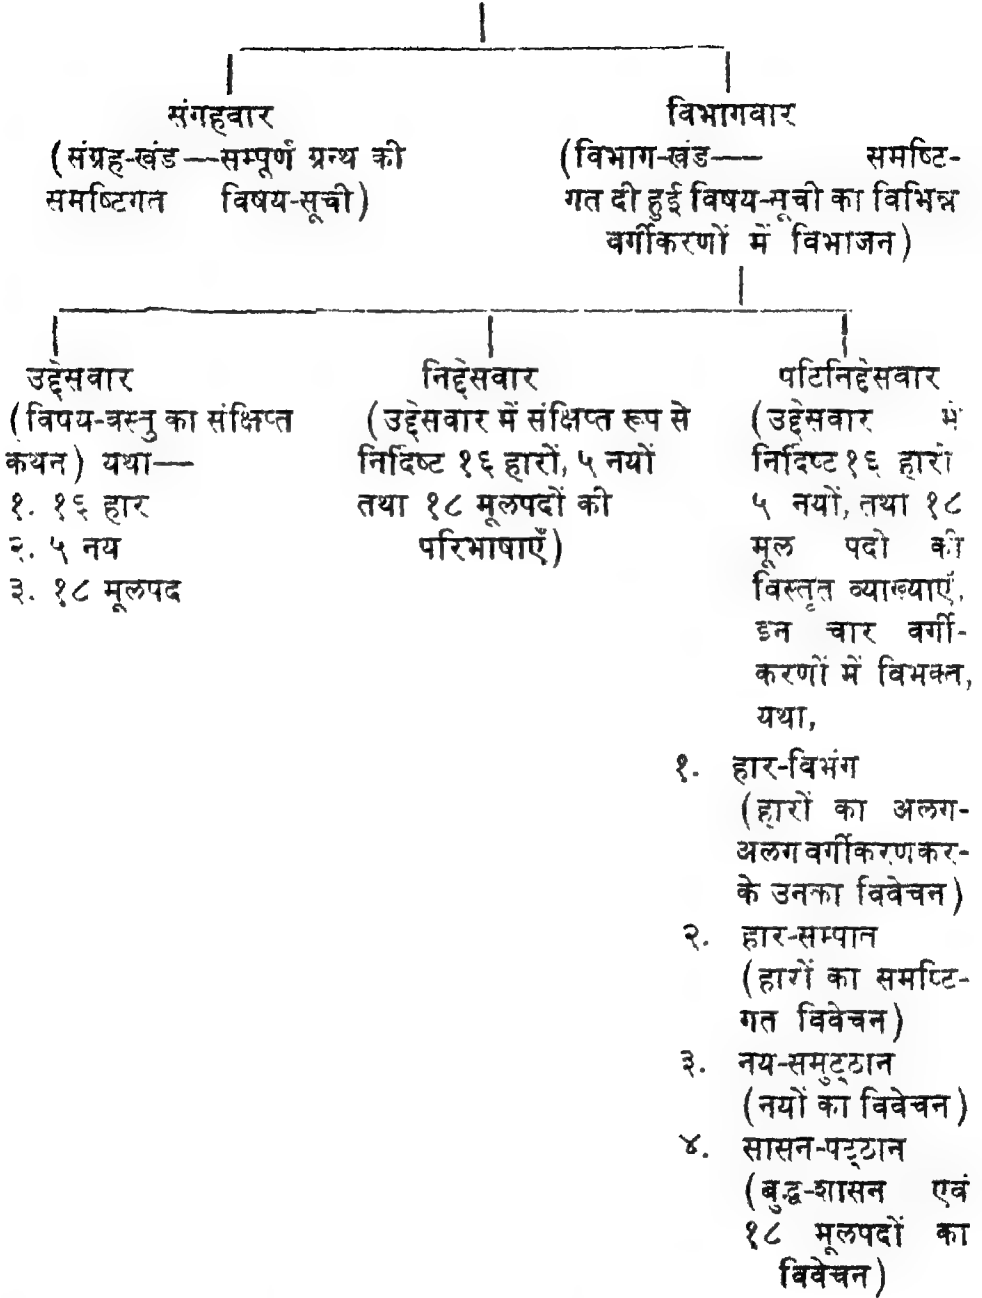 संगहवार
(संग्रह-खंड—सम्पूर्ण ग्रन्थ की
समष्टिगत विषय-सूची)
विभागवार
(विभाग-खंड— समष्टि-
गत दी हुई विषय-सूची का विभिन्न
वर्गीकरणों में विभाजन)
उद्देसवार
(विषय-वस्तु का संक्षिप्त
कथन) यथा—
१. १६ हार
२. ५ नय
३. १८ मूलपद
निद्देसवार
(उद्देसवार में संक्षिप्त रूप से
निर्दिष्ट १६ हारों, ५ नयों
तथा १८ मूलपदों की
परिभाषाएँ)
पटिनिद्देसवार
(उद्देसवार में
निर्दिष्ट १६ हारों
५ नयों, तथा १८
मूल पदो की
विस्तृत व्याख्याएँ,
इन चार वर्गी-
करणों में विभक्त,
यथा,
१. हार-विभंग
(हारों का अलग-
अलग वर्गीकरण कर-
के उनका विवेचन)
२. हार-सम्पात
(हारों का समष्टि-
गत विवेचन)
३. नय-समुट्ठान
(नयों का विवेचन)
४. सासन-पट्ठान
(बुद्ध-शासन एवं
१८ मूलपदों का
विवेचन)